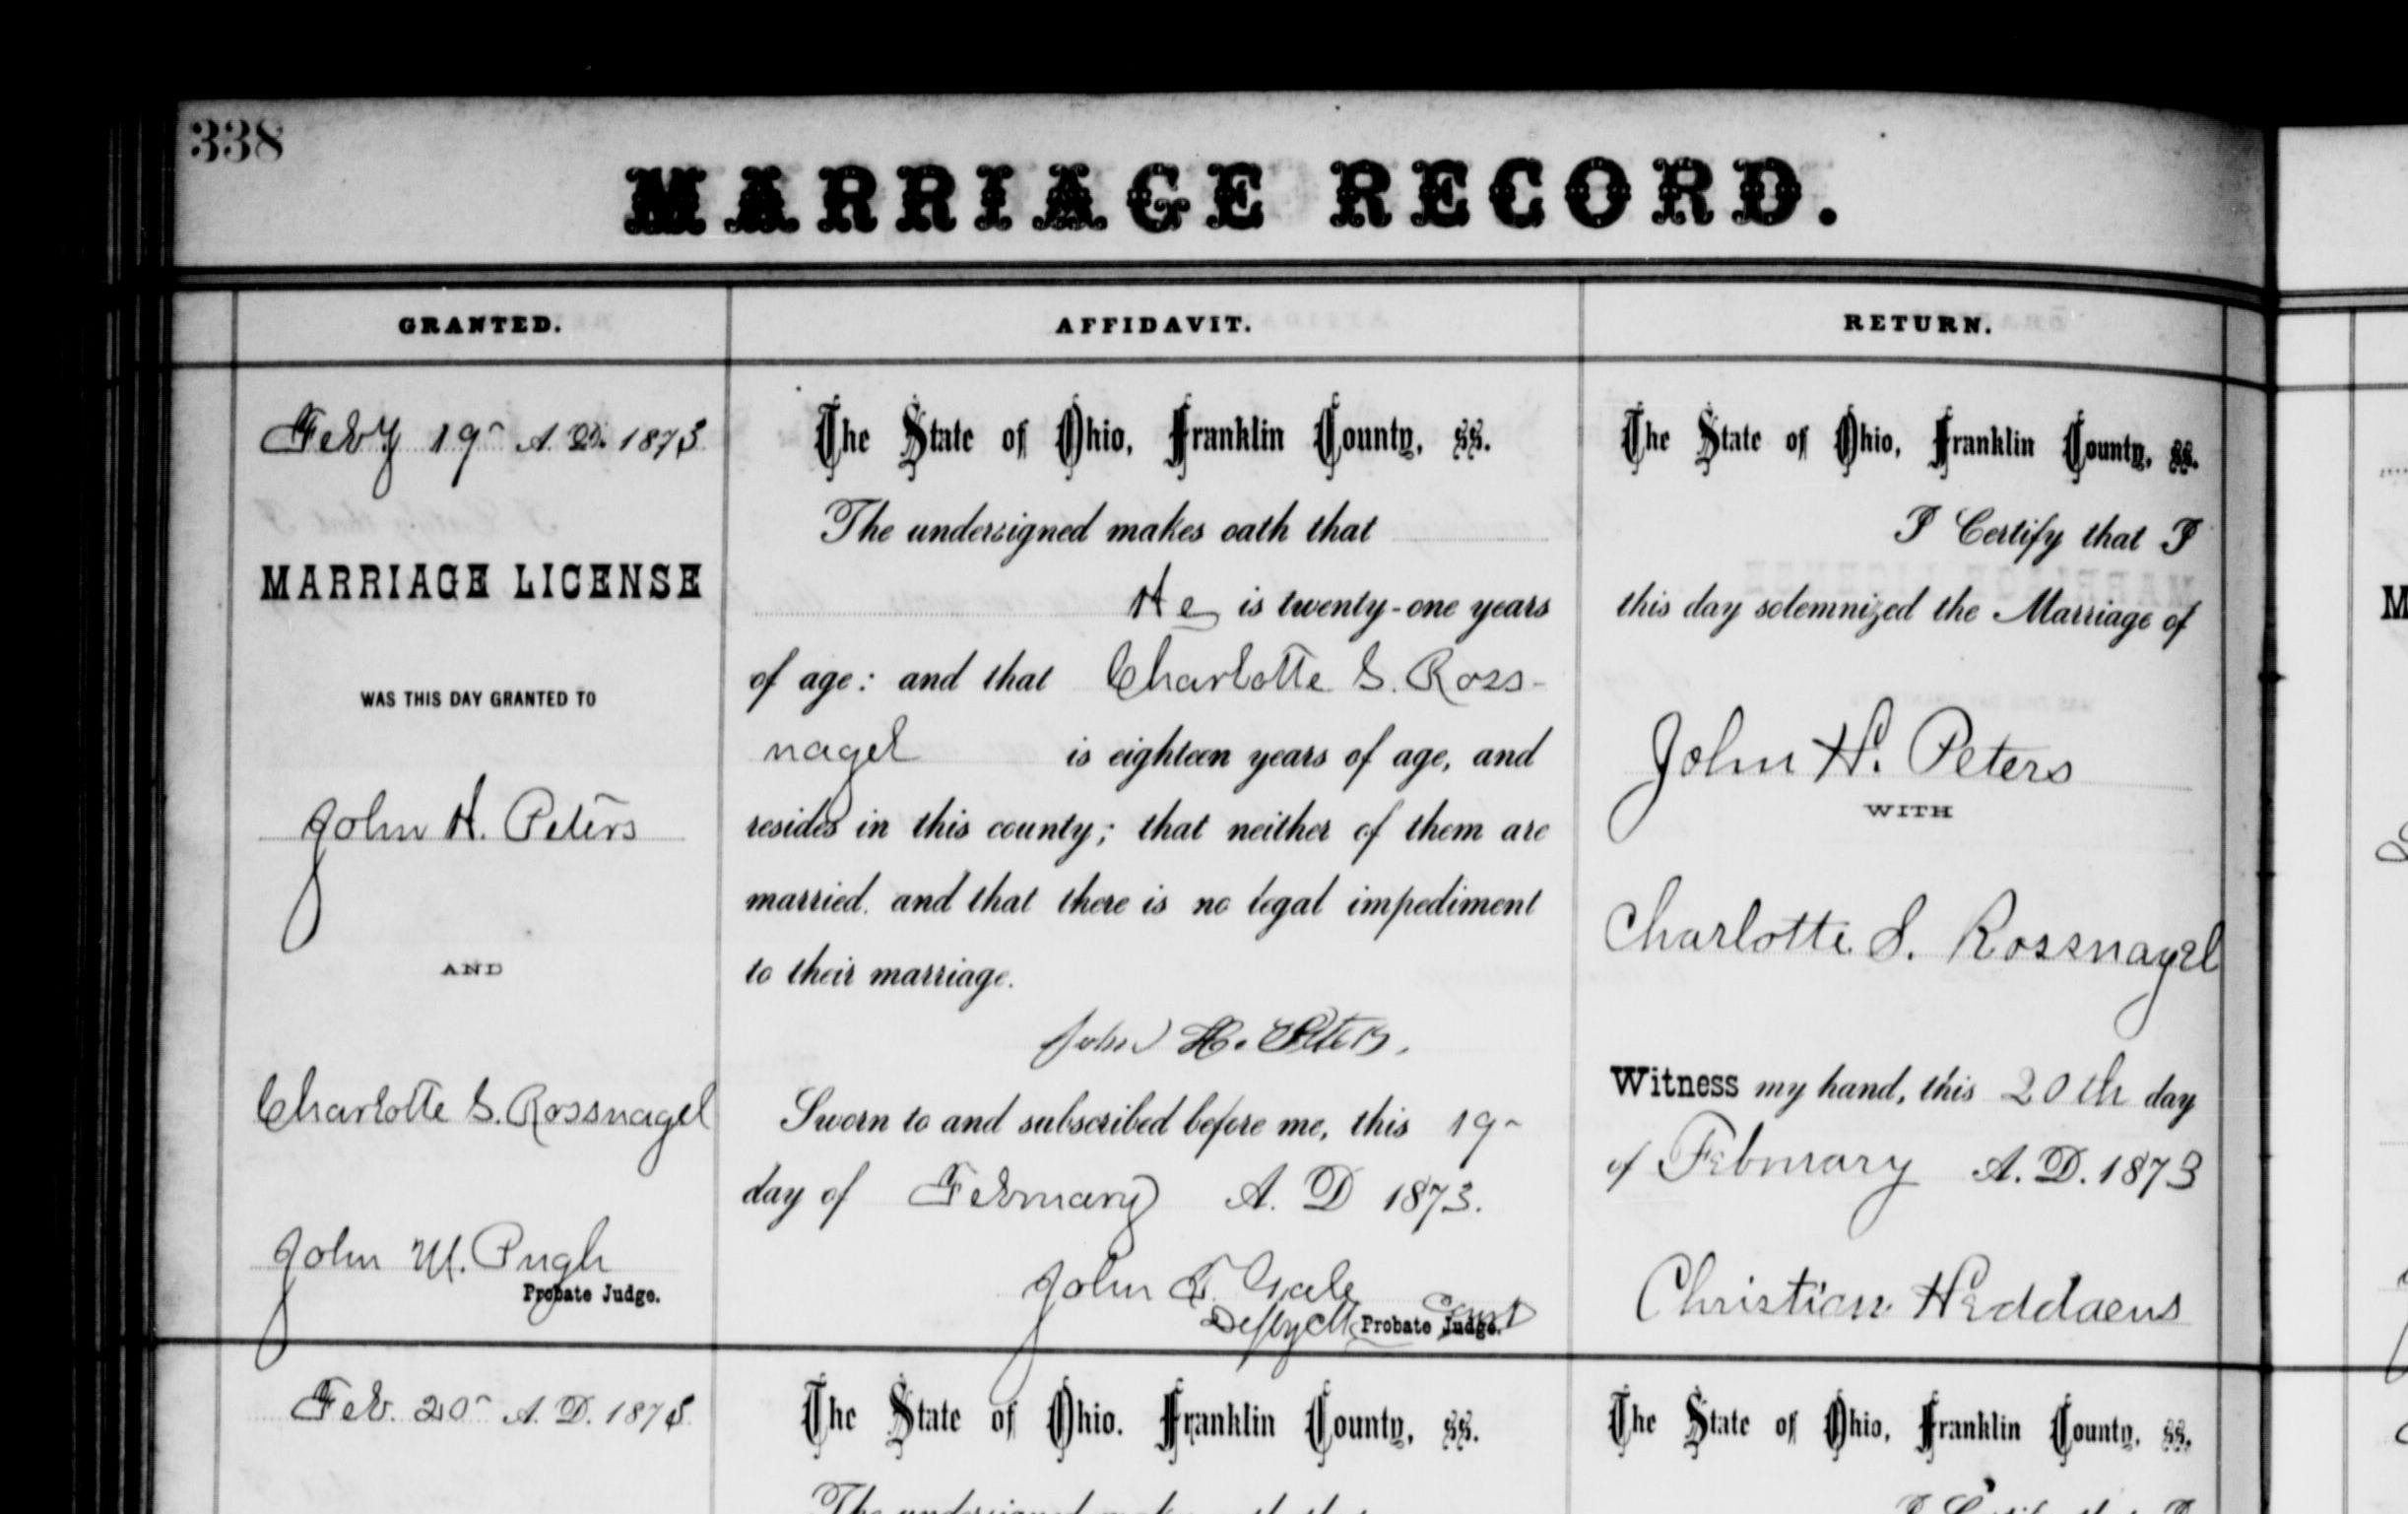 338
MARRIAGE RECORD.
GRANTED.
Feb'y 19 A. D. 1873
MARRIAGE LICENSE
WAS THIS DAY GRANTED TO
John H. Peters
AND
Charlotte S. Rossnagel
John M. Pugh
Probate Judge.
Feb. 20 A. D. 1873
AFFIDAVIT.
The State of Ohio, Franklin County, ss.
The undersigned makes oath that
He is twenty-one years
of age: and that Charlotte S. Ross-
nagel is eighteen years of age, and
resides in this county; that neither of them are
married. and that there is no legal impediment
to their marriage.
John H. Peters.
Sworn to and subscribed before me, this 19
day of February A. D 1873.
John T. Gale
Depty Clk Probate Judge. Court
The State of Ohio. Franklin County, ss.
The undersigned makes oath that
RETURN.
The State of Ohio, Franklin County, ss.
I Certify that I
this day solemnized the Marriage of
John H. Peters
WITH
Charlotte S. Rossnagel
Witness my hand, this 20th day
of February A. D. 1873
Christian Heddaeus
The State of Ohio, Franklin County, ss.
I Certify that I